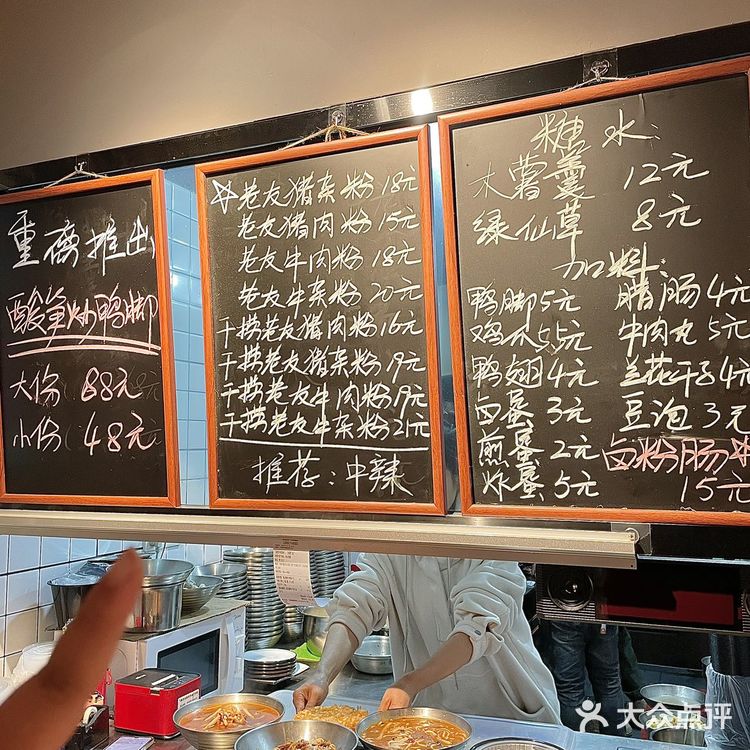 重磅推出
酸笋炒鸭脚
大份 88元
小份 48元
☆老友猪杂粉 18元
老友猪肉粉 15元
老友牛肉粉 18元
老友牛杂粉 20元
干捞老友猪肉粉 16元
干捞老友猪杂粉 19元
干捞老友牛肉粉 19元
干捞老友牛杂粉 21元
推荐：中辣
糖水：
木薯羹 12元
绿仙草 8元
加料：
鸭脚 5元
鸡爪 5.5元
鸭翅 4元
卤蛋 3元
煎蛋 2元
炸蛋 5元
腊肠 4元
牛肉丸 5元
兰花干子 4元
豆泡 3元
卤粉肠
15元
大众点评